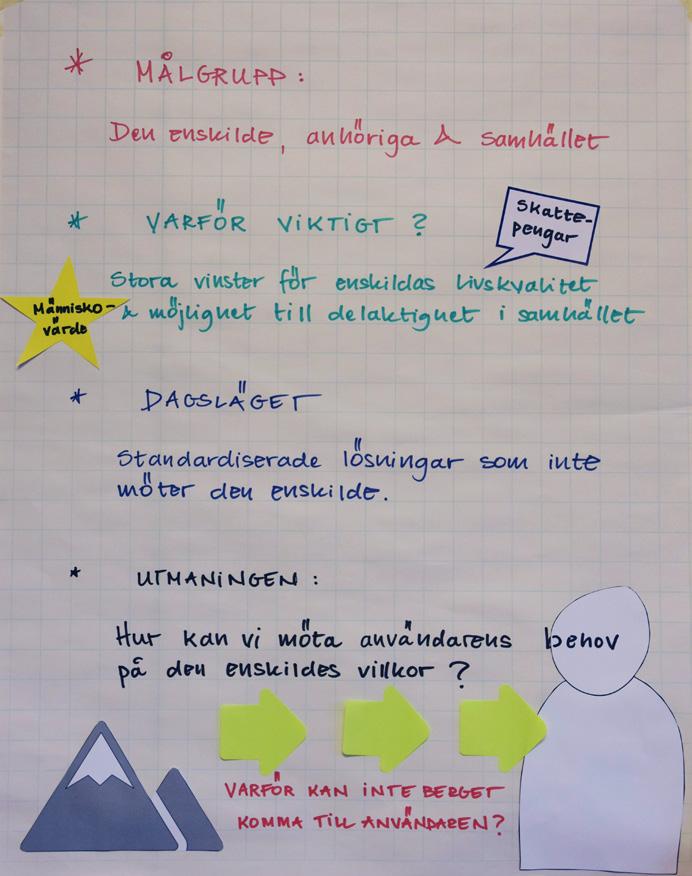 * MÅLGRUPP:
Den enskilde, anhöriga & samhället
* VARFÖR VIKTIGT?
Skatte-
pengar
Stora vinster för enskildas livskvalitet
& möjlighet till delaktighet i samhället
Människo-
värde
* DAGSLÄGET
Standardiserade lösningar som inte
möter den enskilde.
* UTMANINGEN:
Hur kan vi möta användarens behov
på den enskildes villkor?
VARFÖR KAN INTE BERGET
KOMMA TILL ANVÄNDAREN?